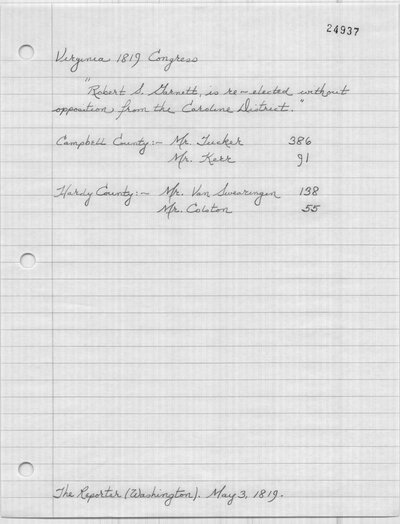 24937
Virginia 1819 Congress
"Robert S. Garnett, is re-elected without
opposition from the Caroline District."
Campbell County:- Mr. Tucker 386
Mr. Kerr 91
Hardy County:- Mr. Van Swearingen 138
Mr. Colston 55
The Reporter (Washington). May 3, 1819.